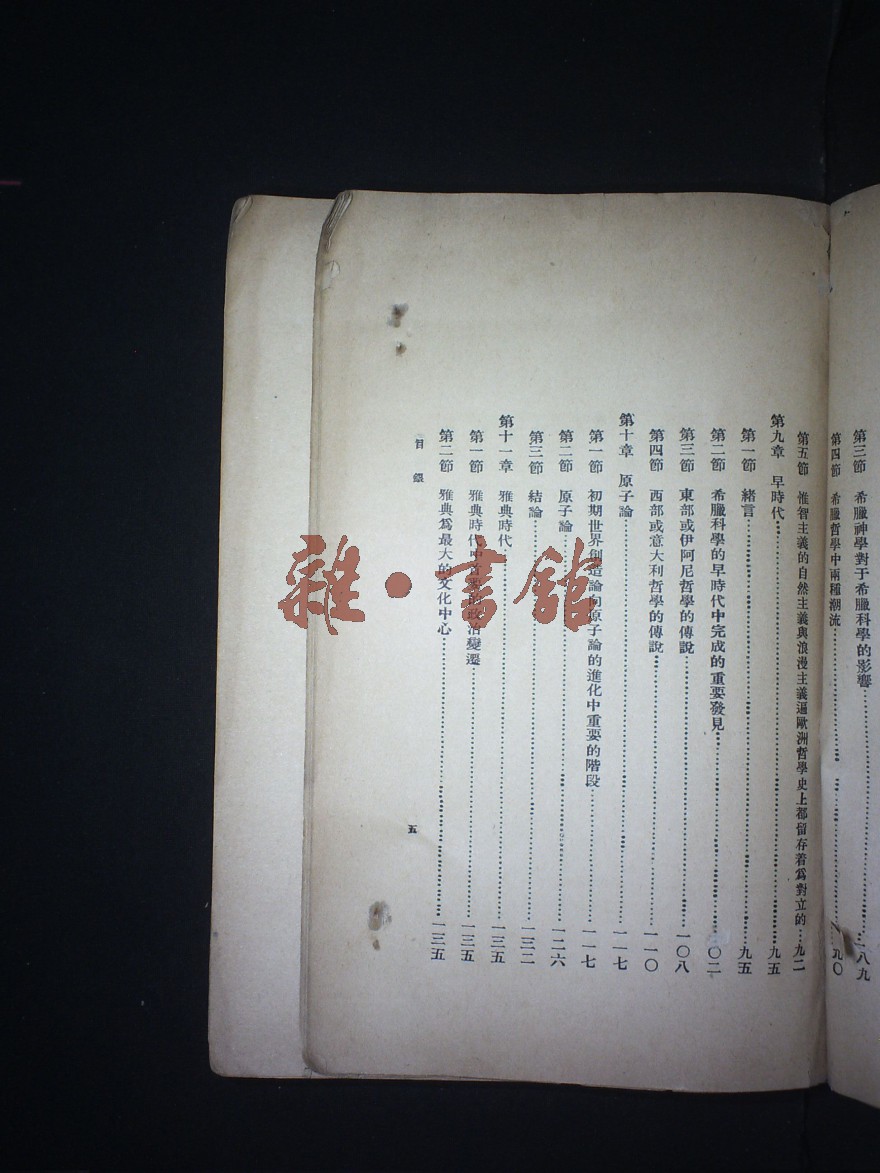 第三節　希臘神學對于希臘科學的影響……八九
第四節　希臘哲學中兩種潮流……九〇
第五節　惟智主義的自然主義與浪漫主義遍歐洲哲學史上都留存着爲對立的…九二
第九章　早時代……九五
第一節　緒言……九五
第二節　希臘科學的早時代中完成的重要發見……一〇二
第三節　東部或伊阿尼哲學的傳說……一〇八
第四節　西部或意大利哲學的傳說……一一〇
第十章　原子論……一一七
第一節　初期世界創造論向原子論的進化中重要的階段……一一七
第二節　原子論……一二六
第三節　結論……一三二
第十一章　雅典時代……一三五
第一節　雅典時代中首要的政治變遷……一三五
第二節　雅典爲最大的文化中心……一三五
目錄
五
雜·書館